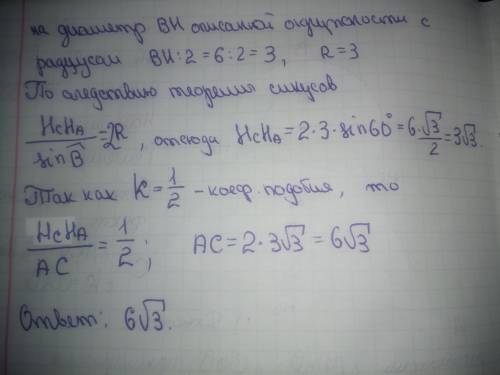 на диаметр BH описанной окружности с
радиусом BH:2=6:2=3, R=3
По следствию теоремы синусов
HcHA/sinB̂=2R, отсюда HcHA=2·3·sin60°=6·√3/2=3√3.
Так как K=1/2 - коеф. подобия, то
HcHA/AC=1/2; AC=2·3√3=6√3
Ответ: 6√3.